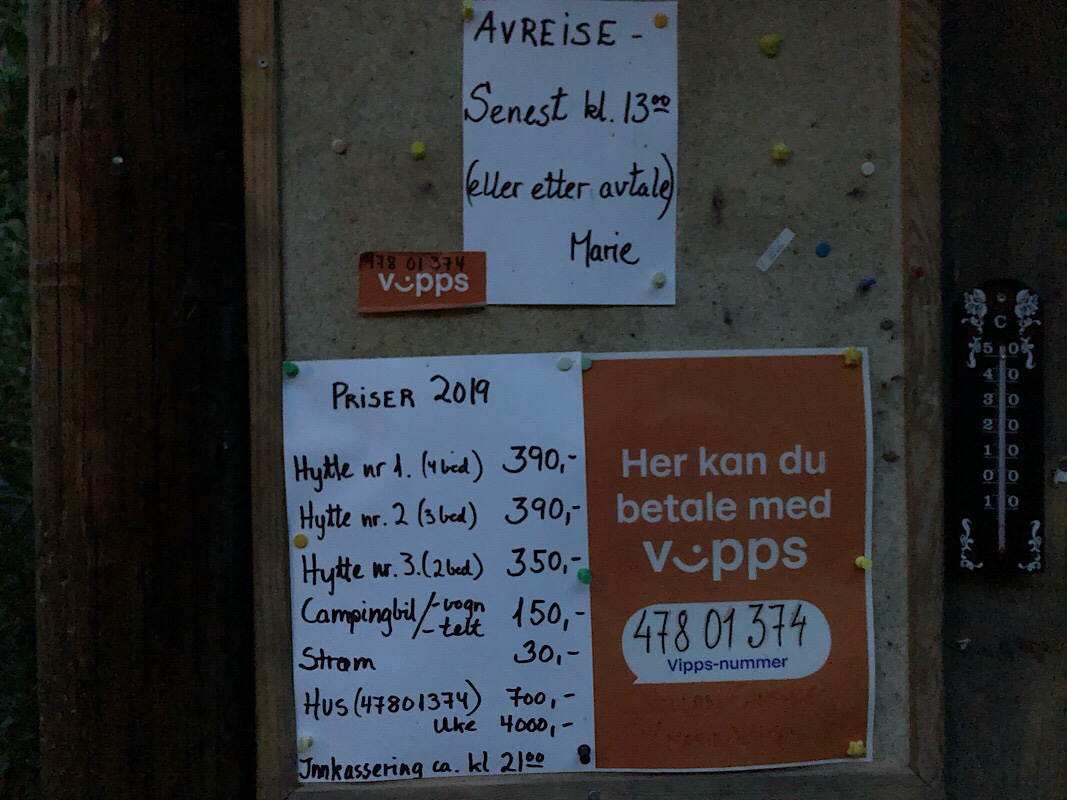 AVREISE -
Senest kl. 13⁰⁰
(eller etter avtale)
Marie
478 01 374
vipps
PRISER 2019
Hytte nr 1. (4 bed) 390,-
Hytte nr. 2 (3 bed) 390,-
Hytte nr. 3. (2 bed) 350,-
Campingbil/-vogn 150,-
/-telt
Strøm 30,-
HUS (47801374) 700,-
Uke 4000,-
Innkassering ca. kl 21⁰⁰
Her kan du
betale med
vipps
478 01 374
Vipps-nummer
C
5 0
4 0
3 0
2 0
1 0
0 0
1 0